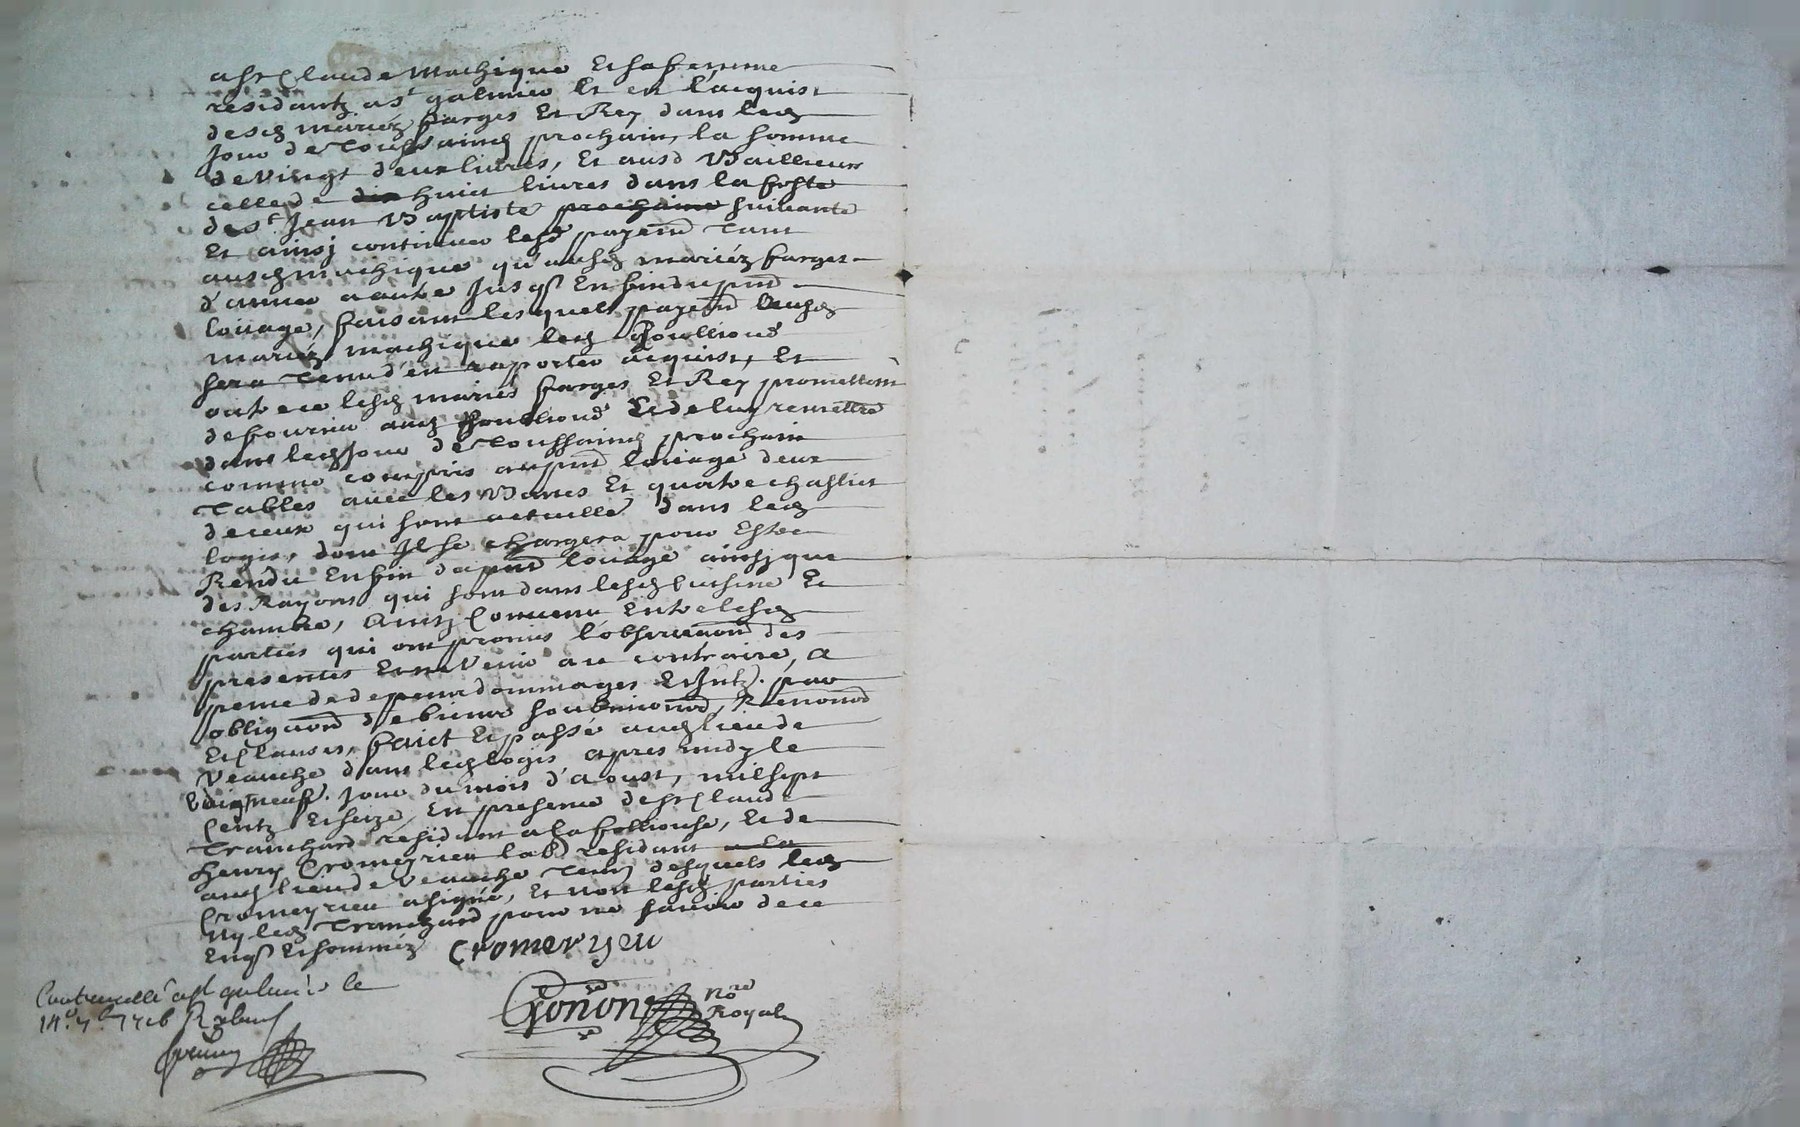 a Sr Claude Machique Et sa femme
residantz a St galmier Et en l'acquist
desd mariéz farges Et Rey dans led
Jour de Toussainq prochain, la somme
de vingt deux livres, Et ausd Bailleurs
celle de dix huict livres dans la feste
de St Jean Baptiste prochaine suivante
Et ainsj continuer lesd payemt Tant
ausd machique qu'ausd mariéz farges
d'année a autre Jusqs En fin du pnt
louage, faisant lesquels payemt Ausd
mariéz machique led
sera Tenu d'en raporter acquist, Et
outre ce lesd mariés farges Et Rey promettent
de fournir aud Et de luy remettre
dans led Jour de Toussainq prochain
comme compris au pnt louage deux
Tables avec les Bancs Et quatre chaslict
de ceux qui sont actuelle dans led
logis, dont Il se chargera pour Estre
Rendu En fin du pnt louage ainsj que
des Rayons qui sont dans lesd Cuisine Et
chambre, Ainsj Convenu Entre lesd
parties qui ont promis l'observaon des
presentes Et ne venir au contraire, A
peine de depens dommages Et Intz. par
obligaon de biens soubmionns, Renonons
Et Clauses, faict Et passé aud lieu de
Veauche dans led logis apres midy le
vingt neuf. Jour du mois d'aoust, mil sept
Centz Et seize, En presence de Sr Claude
Tranchard residant a la folliouse, Et de
henry Cromeyrieu lab. residant a la
aud lieu de Veauche Tem desquels led
Cromeyrieu a signé, Et non lesd parties
Ny led Tranchard pour ne sçavoir de ce
Enqs Et sommez Cromeryeu
Contrerolle a St galmier le
14e 7e 1716
Gonon Nore
Royal